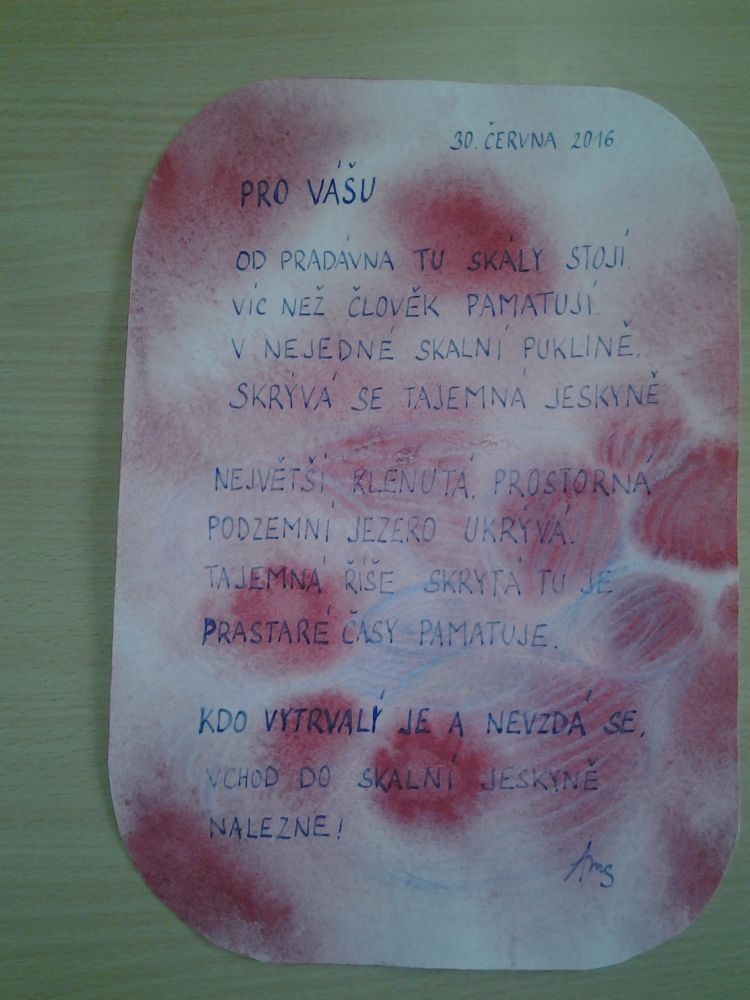 30. ČERVNA 2016
PRO VÁŠU
OD PRADÁVNA TU SKÁLY STOJÍ.
VÍC NEŽ ČLOVĚK PAMATUJÍ.
V NEJEDNÉ SKALNÍ PUKLINĚ,
SKRÝVÁ SE TAJEMNÁ JESKYNĚ
NEJVĚTŠÍ KLENUTÁ, PROSTORNÁ
PODZEMNÍ JEZERO UKRÝVÁ.
TAJEMNÁ ŘÍŠE SKRYTÁ TU JE
PRASTARÉ ČASY PAMATUJE.
KDO VYTRVALÝ JE A NEVZDÁ SE,
VCHOD DO SKALNÍ JESKYNĚ
NALEZNE!